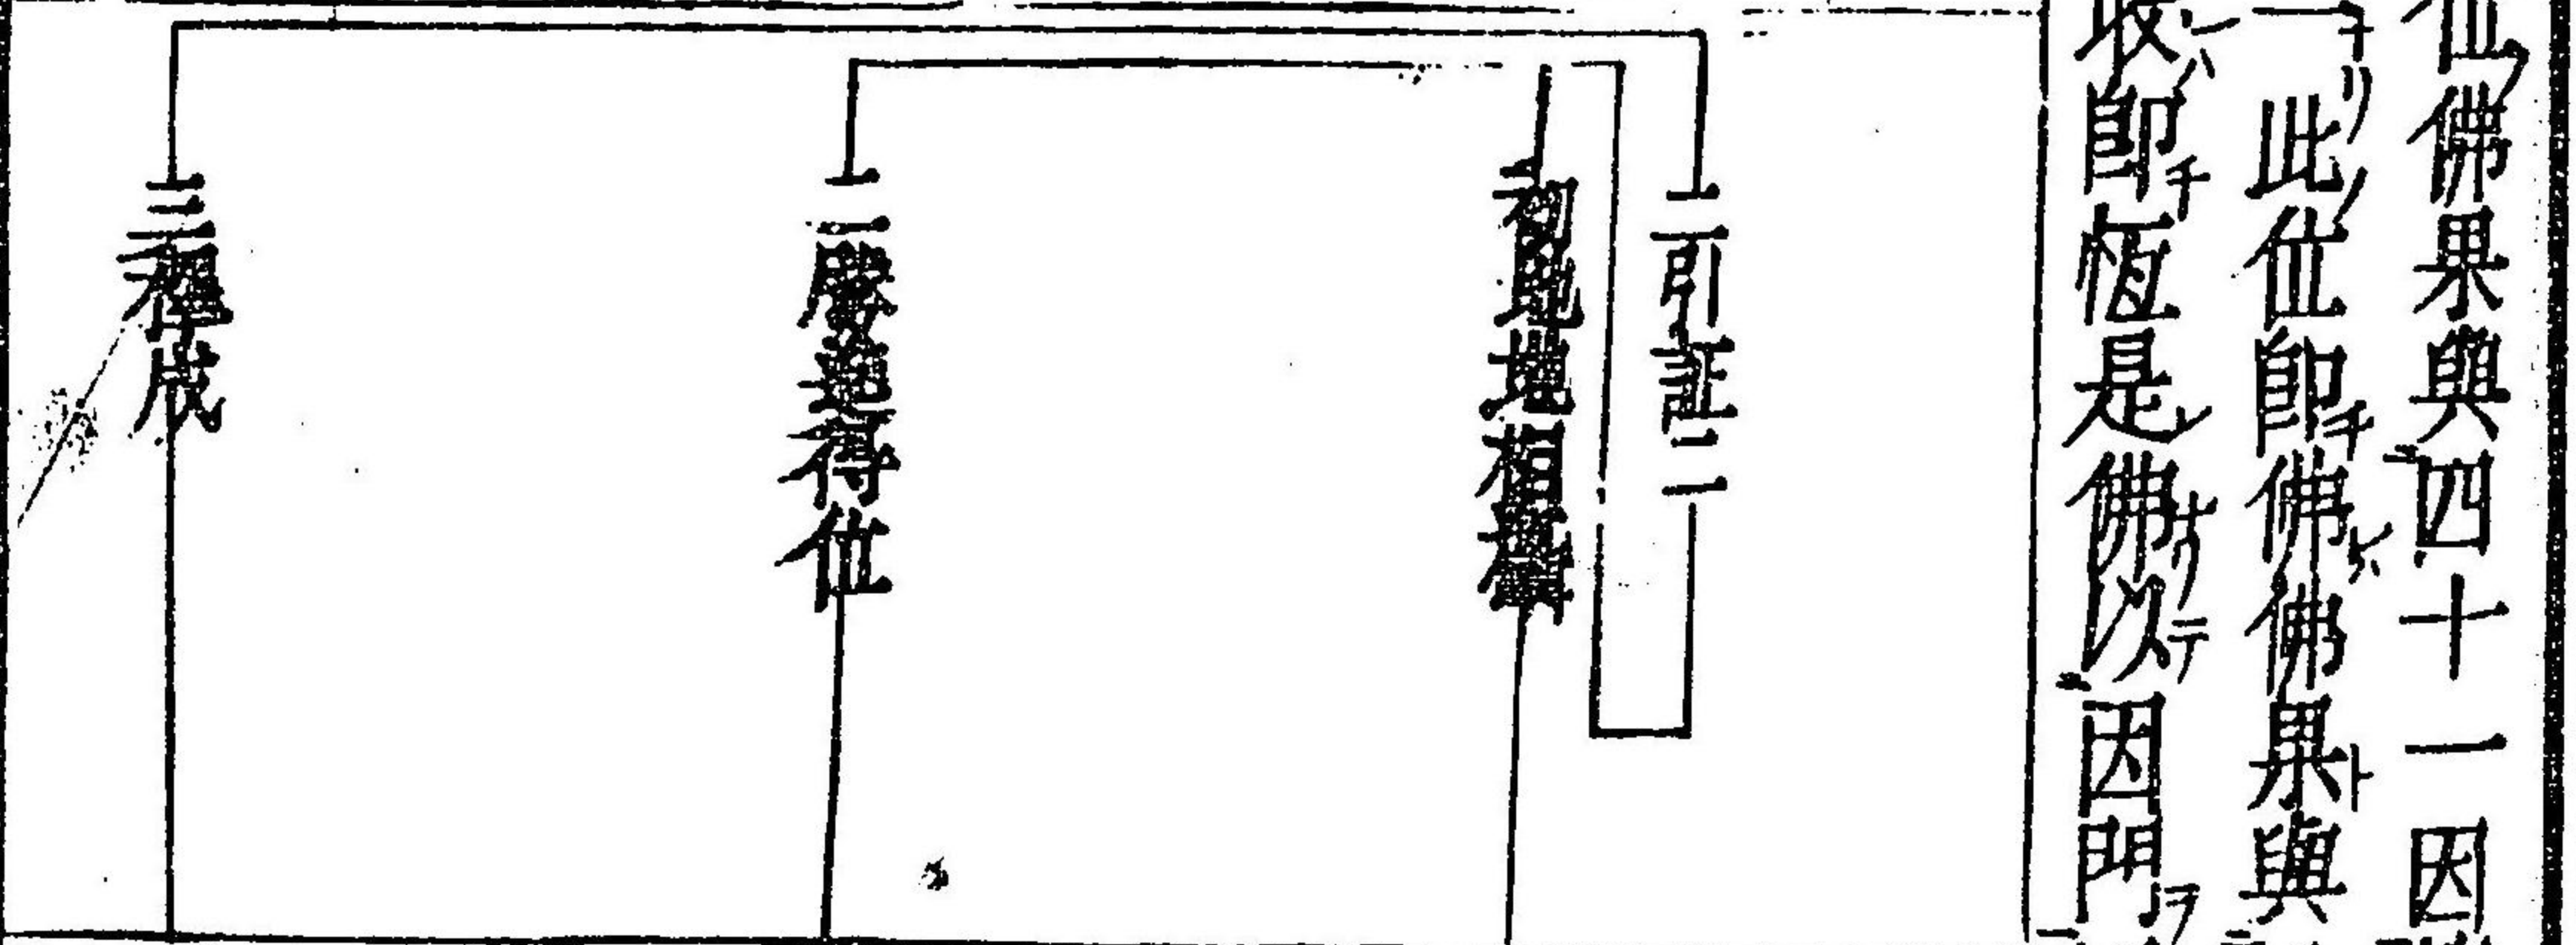 位佛果與四十一因
此位即佛佛果與
收即恆是佛以因門
二引証二
初地地相攝
二勝進得位
三釋成